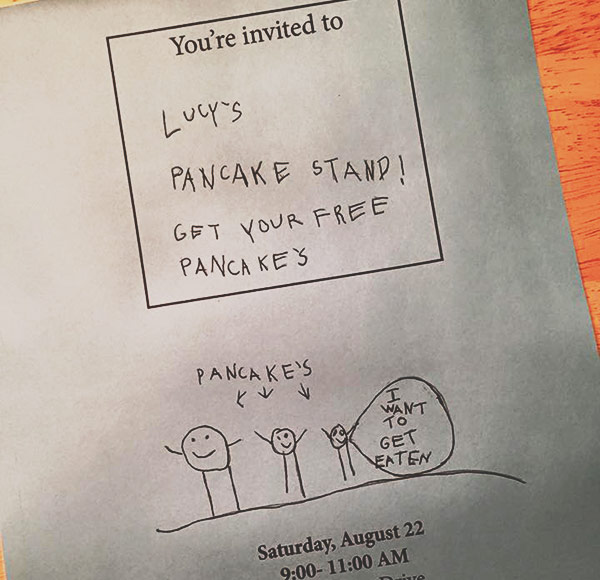 You're invited to
LUCY'S
PANCAKE STAND!
GET YOUR FREE
PANCAKE'S
PANCAKE'S
I
WANT
TO
GET
EATEN
Saturday, August 22
9:00- 11:00 AM
Drive